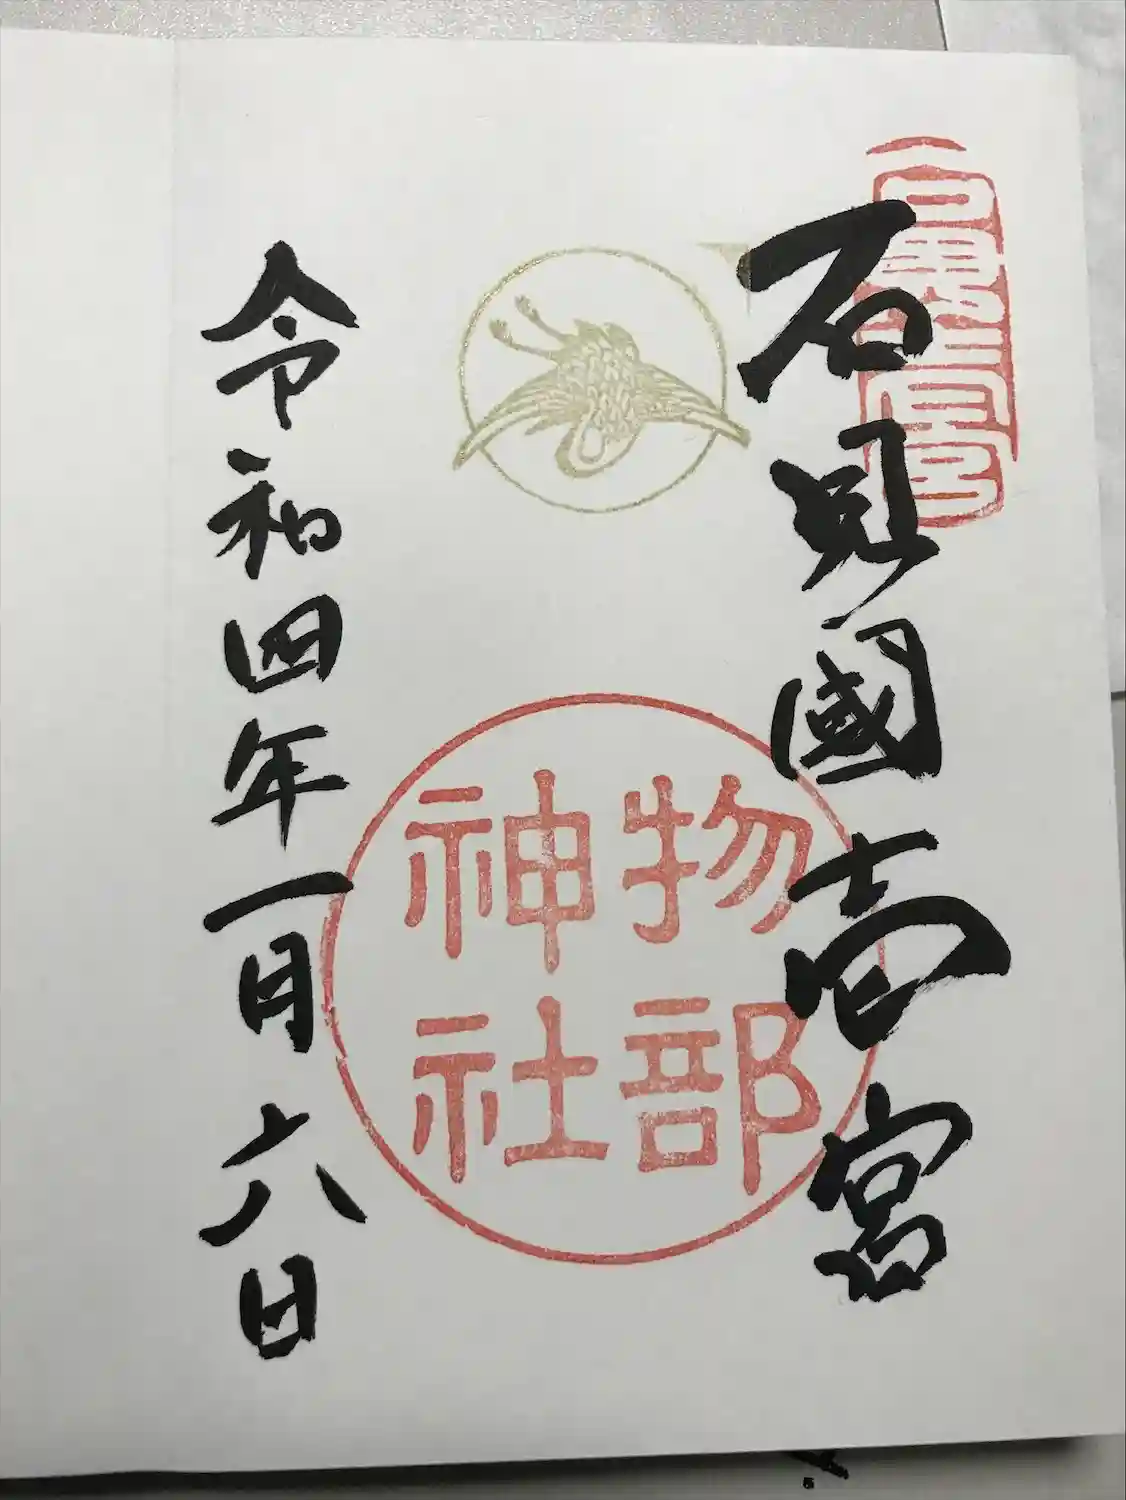 石見國壹宮
物部
神社
令和四年一月六日